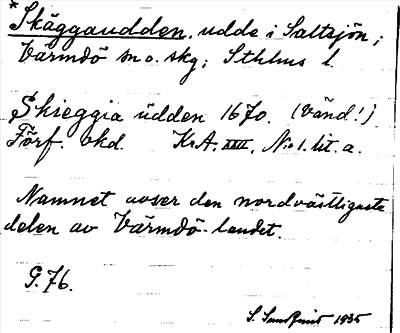 *Skäggaudden, udde i Saltsjön;
Värmdö sn o. skg; Sthlms l.
Skieggia udden 1670. (Vänd!)
Förf. okd. KrA. XXII. No 1. lit. a.
Namnet avser den nordvästligaste
delen av Värmdö-landet.
G. 76.
S. 1935